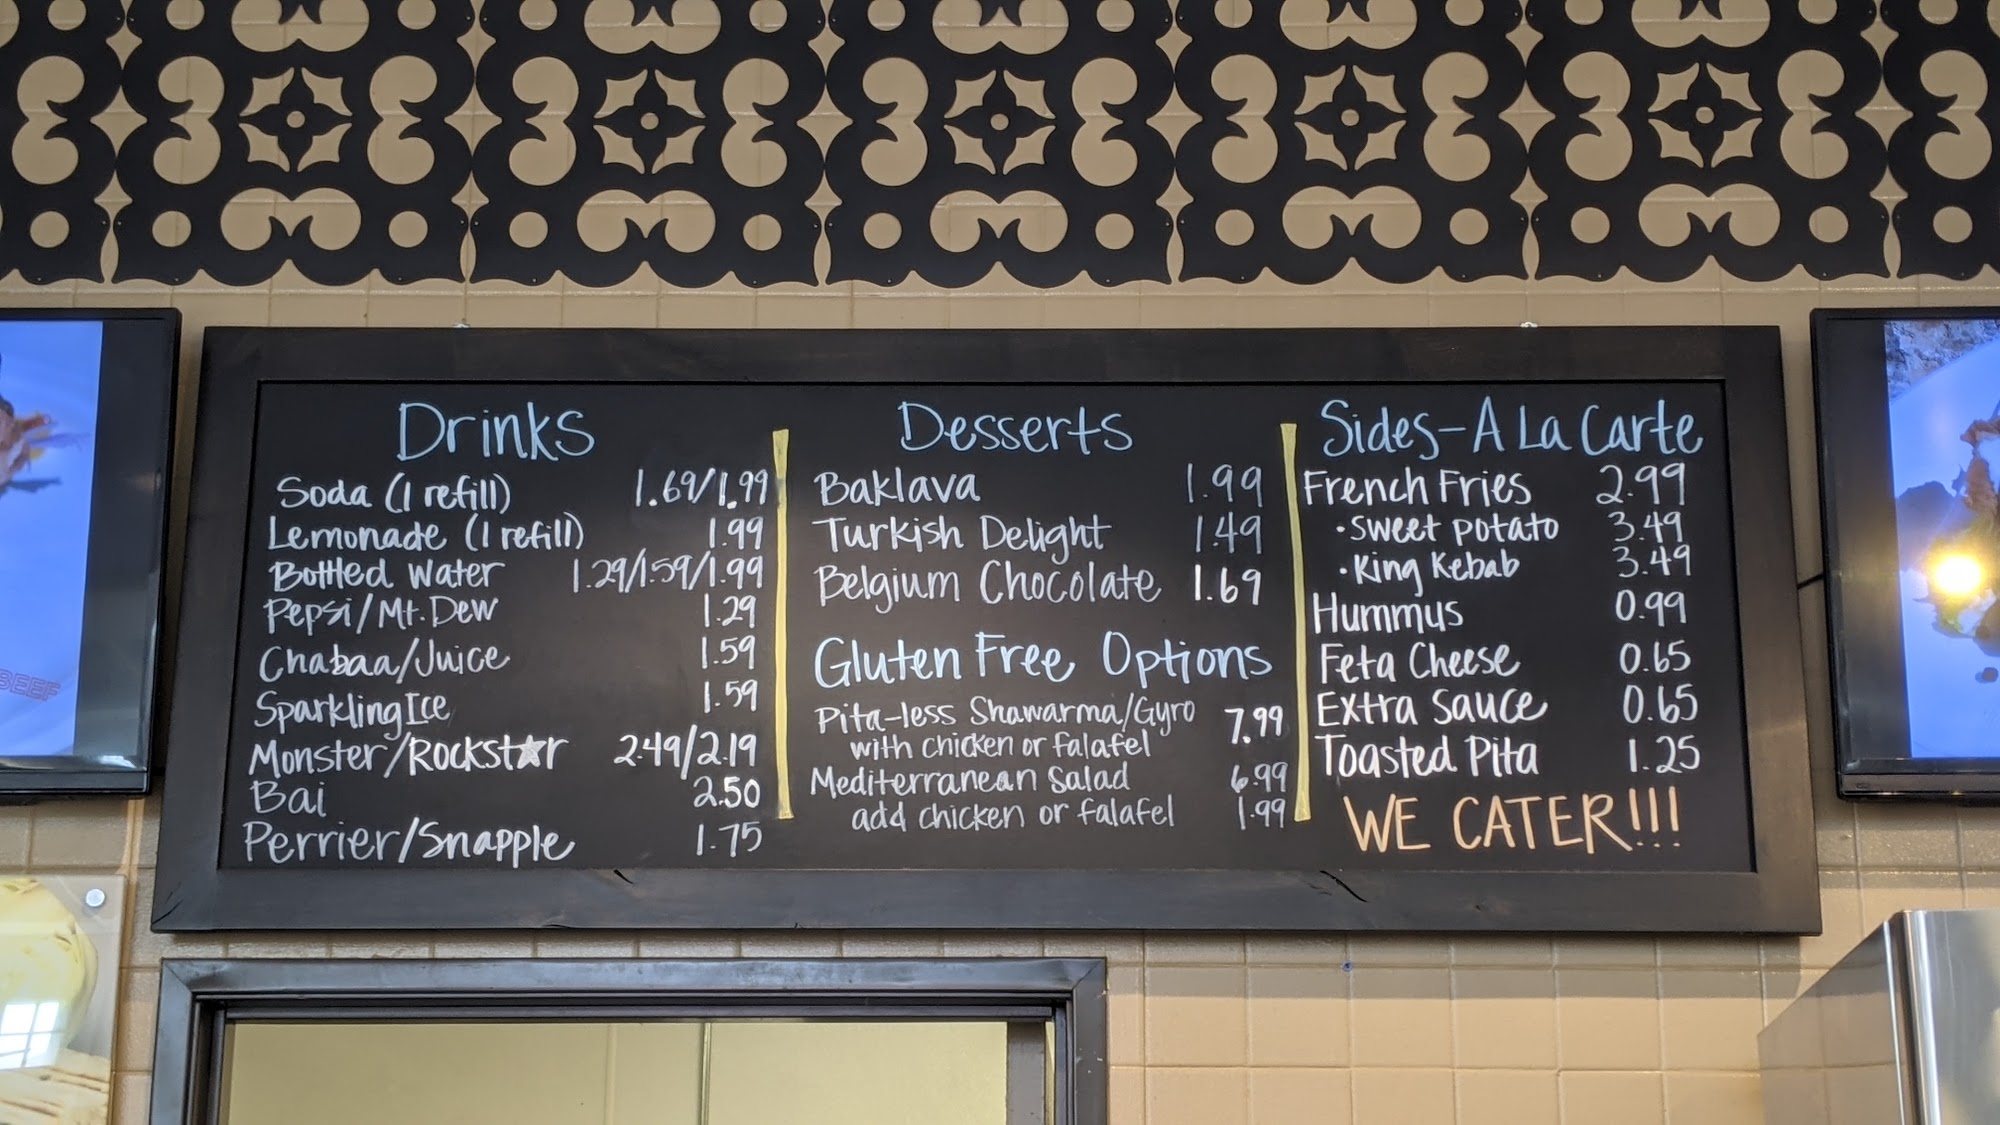 Drinks
Soda (1 refill) 1.69/1.99
Lemonade (1 refill) 1.99
Bottled Water 1.29/1.59/1.99
Pepsi/Mt. Dew 1.29
Chabaa/Juice 1.59
Sparkling Ice 1.59
Monster/Rockstar 2.49/2.19
Bai 2.50
Perrier/Snapple 1.75
Desserts
Baklava 1.99
Turkish Delight 1.49
Belgium Chocolate 1.69
Gluten Free Options
Pita-less Shawarma/Gyro 7.99
with chicken or falafel
Mediterranean Salad 6.99
add chicken or falafel 1.99
Sides-A La Carte
French Fries 2.99
• Sweet potato 3.49
• King Kebab 3.49
Hummus 0.99
Feta Cheese 0.65
Extra Sauce 0.65
Toasted Pita 1.25
WE CATER!!!
BEEF